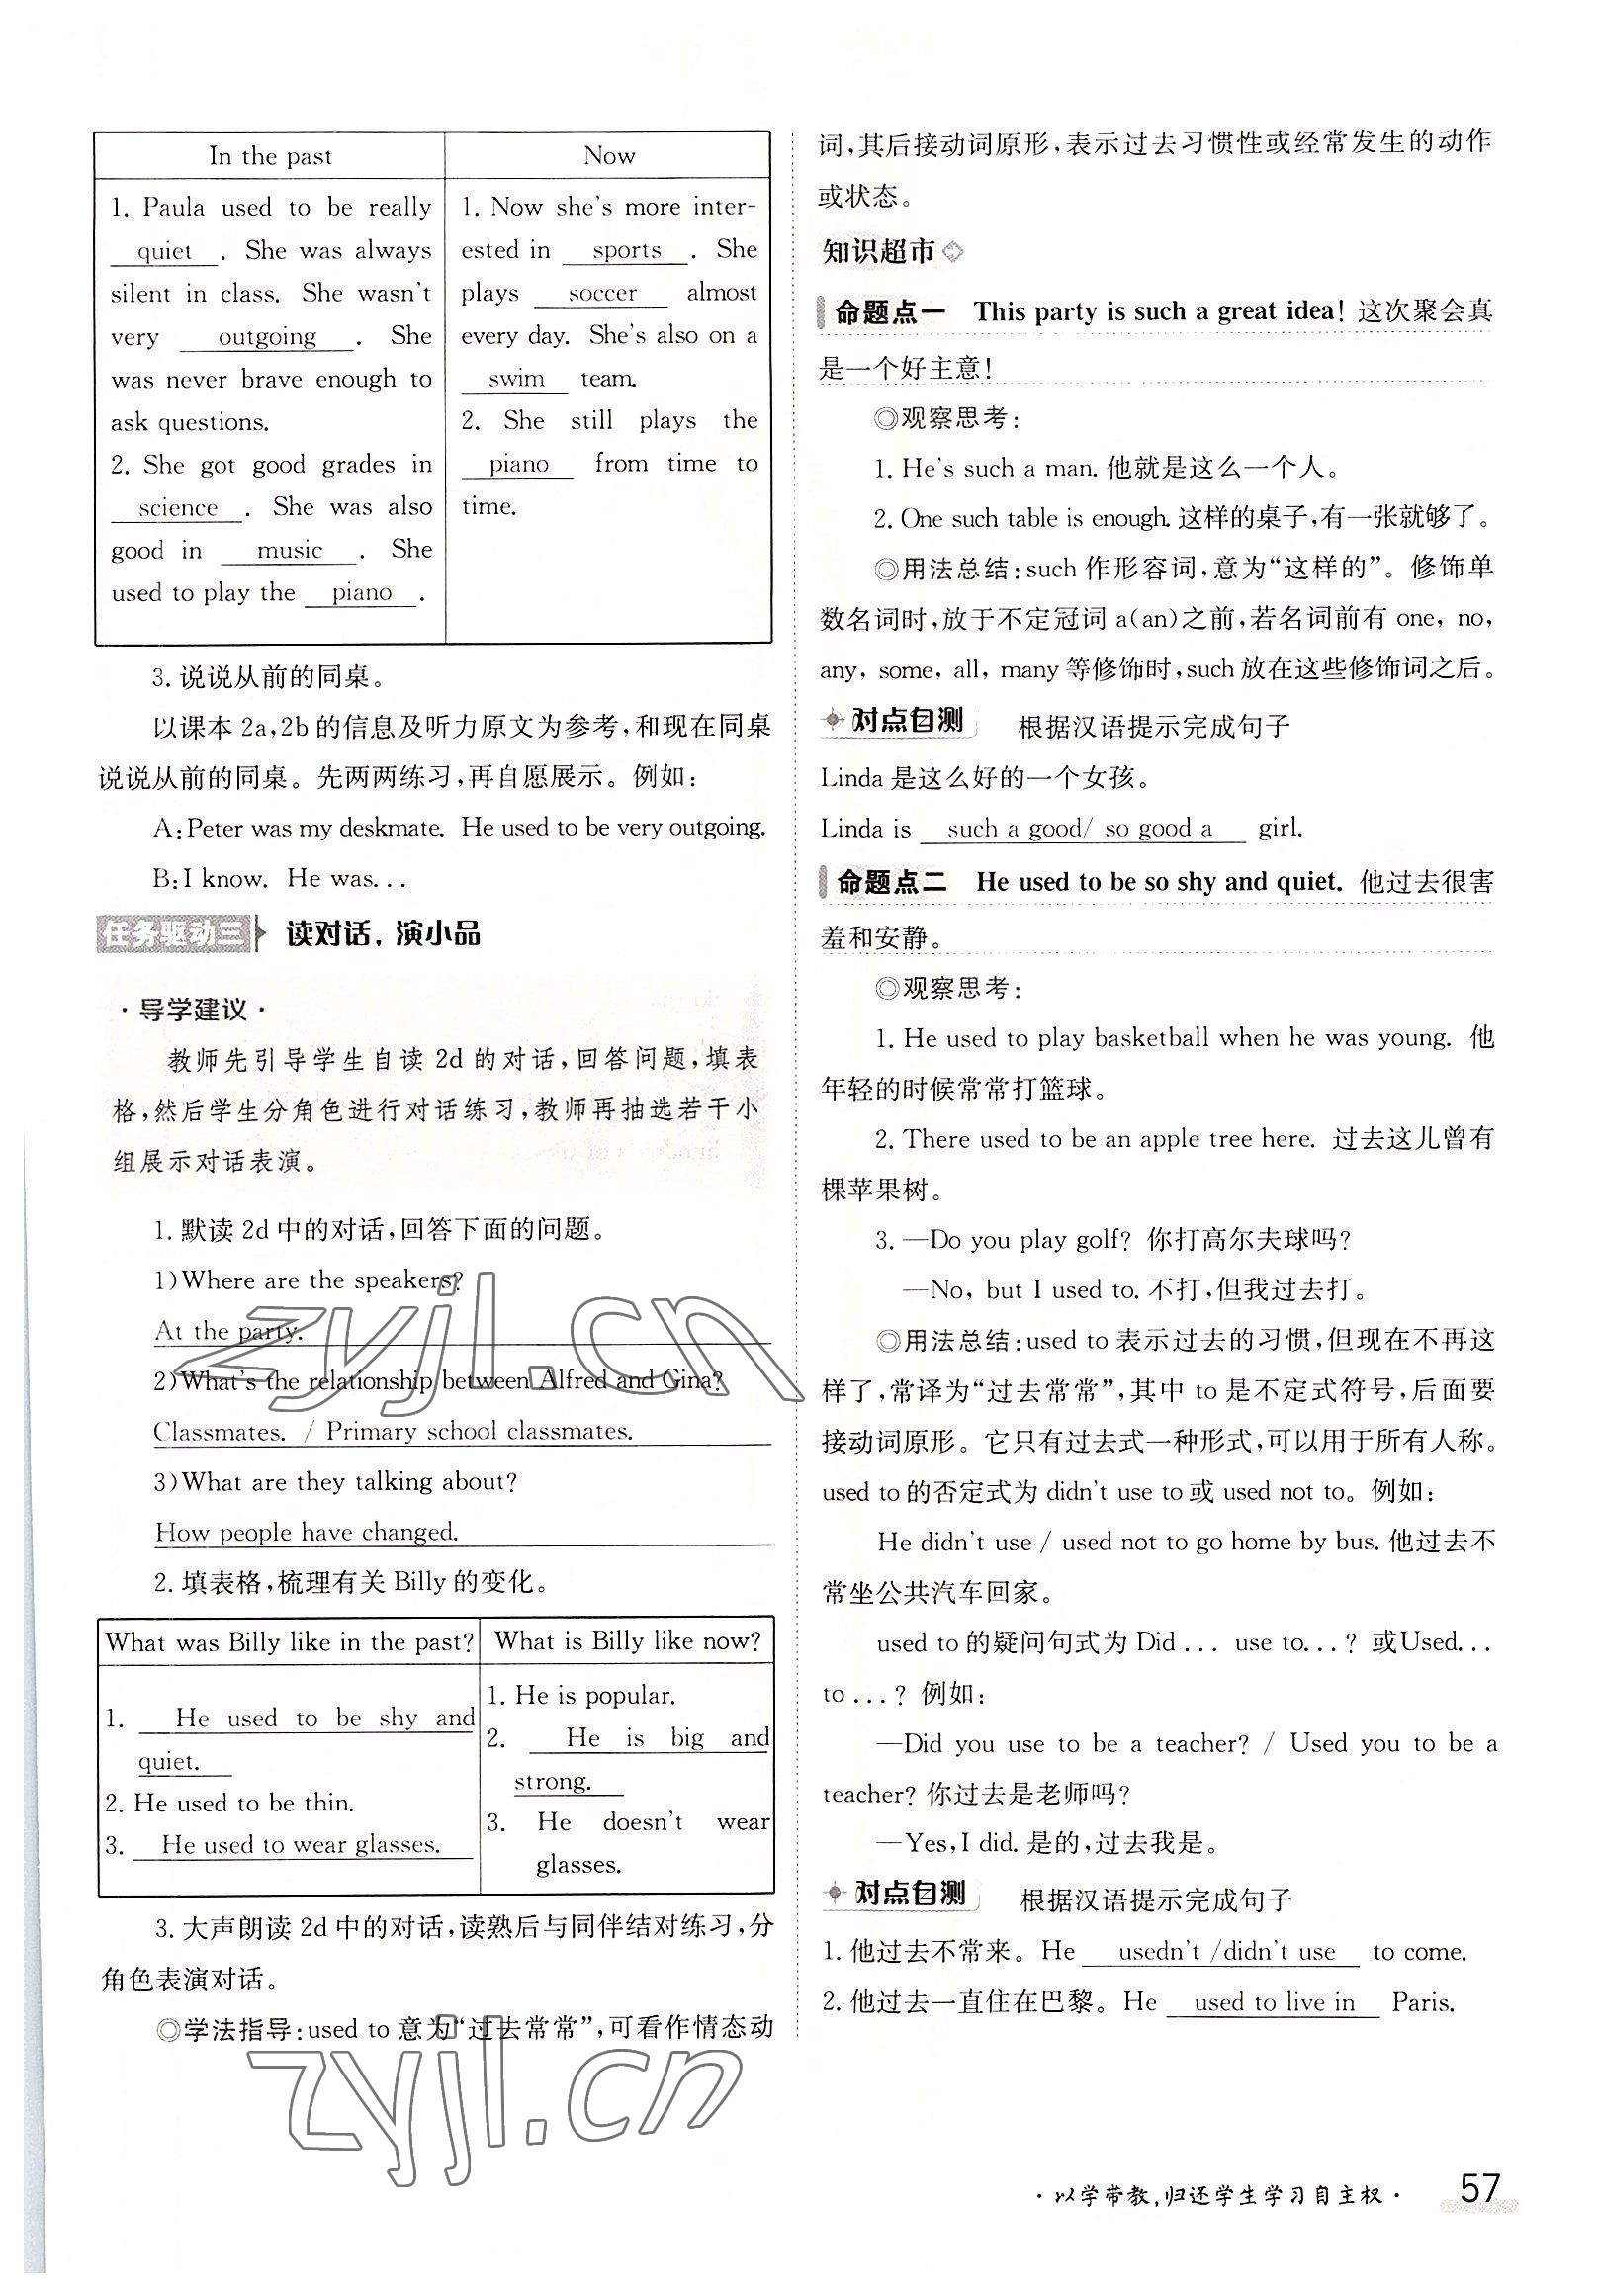 In the past
1. Paula used to be really
quiet . She was always
silent in class. She wasn't
very outgoing . She
was never brave enough to
ask questions.
2. She got good grades in
science . She was also
good in music . She
used to play the piano .
Now
1. Now she's more inter-
ested in sports . She
plays soccer almost
every day. She's also on a
swim team.
2. She still plays the
piano from time to
time.
3. 说说从前的同桌。
以课本 2a,2b 的信息及听力原文为参考,和现在同桌
说说从前的同桌。先两两练习,再自愿展示。例如:
A:Peter was my deskmate. He used to be very outgoing.
B:I know. He was...
任务驱动三 读对话,演小品
·导学建议·
教师先引导学生自读 2d 的对话,回答问题,填表
格,然后学生分角色进行对话练习,教师再抽选若干小
组展示对话表演。
1. 默读 2d 中的对话,回答下面的问题。
1)Where are the speakers?
At the party.
2)What's the relationship between Alfred and Gina?
Classmates. / Primary school classmates.
3)What are they talking about?
How people have changed.
2. 填表格,梳理有关 Billy 的变化。
What was Billy like in the past?
1. He used to be shy and
quiet.
2. He used to be thin.
3. He used to wear glasses.
What is Billy like now?
1. He is popular.
2. He is big and
strong.
3. He doesn't wear
glasses.
3. 大声朗读 2d 中的对话,读熟后与同伴结对练习,分
角色表演对话。
◎学法指导:used to 意为“过去常常”,可看作情态动
词,其后接动词原形,表示过去习惯性或经常发生的动作
或状态。
知识超市
命题点一 This party is such a great idea! 这次聚会真
是一个好主意!
◎观察思考:
1. He's such a man. 他就是这么一个人。
2. One such table is enough. 这样的桌子,有一张就够了。
◎用法总结:such 作形容词,意为“这样的”。修饰单
数名词时,放于不定冠词 a(an)之前,若名词前有 one, no,
any, some, all, many 等修饰时,such 放在这些修饰词之后。
对点自测 根据汉语提示完成句子
Linda 是这么好的一个女孩。
Linda is such a good/ so good a girl.
命题点二 He used to be so shy and quiet. 他过去很害
羞和安静。
◎观察思考:
1. He used to play basketball when he was young. 他
年轻的时候常常打篮球。
2. There used to be an apple tree here. 过去这儿曾有
棵苹果树。
3. —Do you play golf? 你打高尔夫球吗?
—No, but I used to. 不打,但我过去打。
◎用法总结:used to 表示过去的习惯,但现在不再这
样了,常译为“过去常常”,其中 to 是不定式符号,后面要
接动词原形。它只有过去式一种形式,可以用于所有人称。
used to 的否定式为 didn't use to 或 used not to。例如:
He didn't use / used not to go home by bus. 他过去不
常坐公共汽车回家。
used to 的疑问句式为 Did ... use to...? 或 Used...
to ...? 例如:
—Did you use to be a teacher? / Used you to be a
teacher? 你过去是老师吗?
—Yes, I did. 是的,过去我是。
对点自测 根据汉语提示完成句子
1. 他过去不常来。He usedn't /didn't use to come.
2. 他过去一直住在巴黎。He used to live in Paris.
·以学带教,归还学生学习自主权· 57
zyjl.cn
zyjl.cn